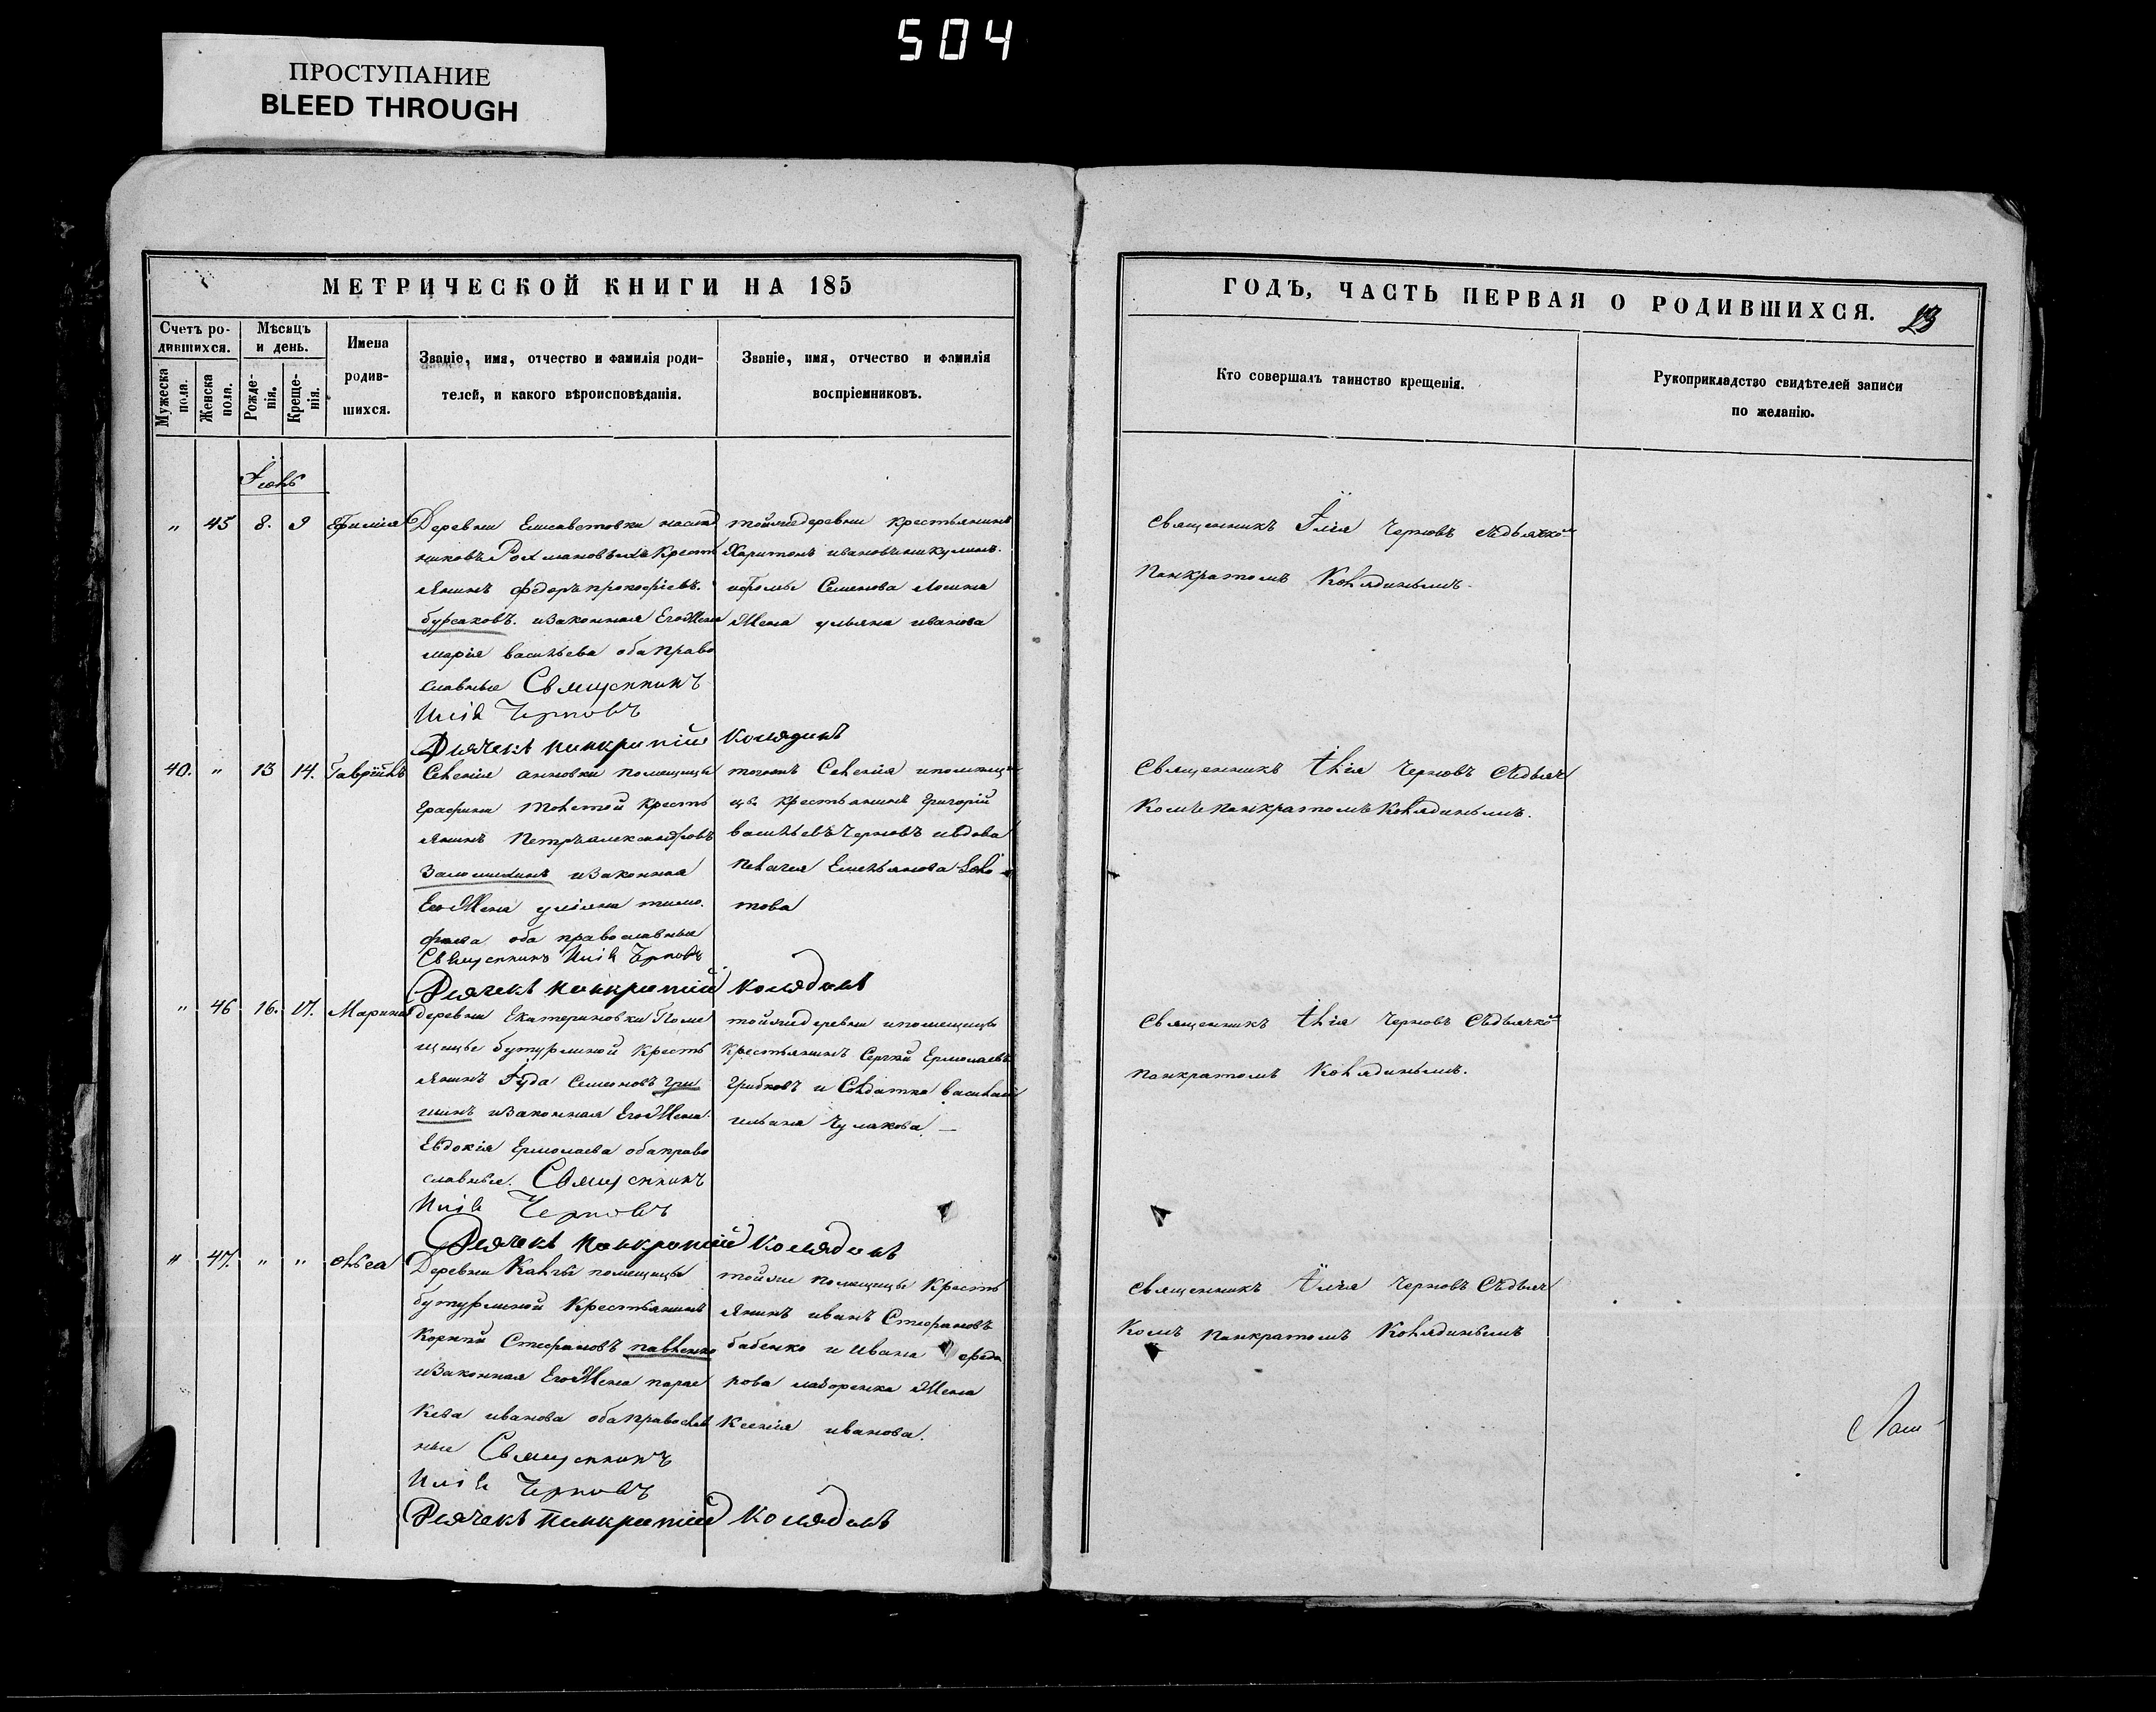 504
ПРОСТУПАНИЕ
BLEED THROUGH
МЕТРИЧЕСКОЙ КНИГИ НА 185
Счетъ ро-
дившихся.
Мѣсяцъ
и день.
Мужеска
пола.
Женска
пола.
Рожде-
нія.
Креще-
нія.
Имена
родив-
шихся.
Званіе, имя, отчество и фамилія роди-
телей, и какого вѣроисповѣданія.
Званіе, имя, отчество и фамилія
воспріемниковъ.
Іюнь
" 45 8. 9 Ефимія
Деревни Елисаветовки наслѣд
никовъ Рохмановыхъ Кресть
янинъ Федоръ прокофіевъ.
бурсаковъ. изаконная Его Жена
марія васильева оба право
славные Священникъ
Илія Черновъ
Дьячекъ панкратій Колядинъ
тойже деревни крестьянинъ
Харитонъ ивановъ никулинъ.
Семенова
Жена ульяна иванова
40. " 13 14. Гавріилъ
Селенія анновки помещицы
Толстой Кресть
янинъ Петръ александровъ
изаконная
Его Жена уліяна тимо.
фіева оба православные
Священникъ Илія Черновъ
Дьячекъ панкратій Колядинъ
тогожъ Селенія ипомещи
цы крестьянинъ Григорій
васильевъ Черновъ ивдова
Пелагія Емельянова Боло
това
" 46 16. 17. Марина
деревни Екатериновки Поме
щицы бутурлиной Кресть
янинъ Іуда Семеновъ гри
шинъ изаконная Его Жена
Евдокія Ермолаева оба право
славные. Священникъ
Илія Черновъ
Дьячекъ панкратій Колядинъ
тойже деревни ипомещицы
крестьянинъ Сергѣй Ермолаевъ
Грибковъ и Солдатка васили
ильина Чумакова
" 47. " " Ольга
Деревни помещицы
бутурлиной Крестьянинъ
Корнѣй Стефановъ павленко
изаконная Его Жена парас
кева иванова оба православ
ные Священникъ
Илія Черновъ
Дьячекъ панкратій Колядинъ
тойже помещицы Кресть
янинъ иванъ Стефановъ
бабенко и Ивана федо
рова Жена
Ксенія иванова.
ГОДЪ, ЧАСТЬ ПЕРВАЯ О РОДИВШИХСЯ.
Кто совершалъ таинство крещенія.
Рукоприкладство свидѣтелей записи
по желанію.
Священникъ Ілія Черновъ Съдьячко
Панкратомъ Колядинымъ.
Священникъ Ілія Черновъ Съдьяч
Комъ Панкратомъ Колядинымъ.
Священникъ Ілія Черновъ Съдьячко
Панкратомъ Колядинымъ.
Священникъ Ілія Черновъ Съдьяч
Комъ Панкратомъ Колядинымъ